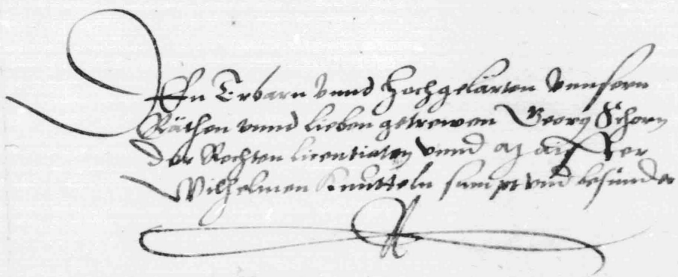 Den Erbarn vnnd Hochgelärten vnnsern
Räthen vnnd lieben getrewen Georg Schorn
der Rechten licentiaten vnnd Maister
Wilhelmen Knütteln sampt vnd besunder